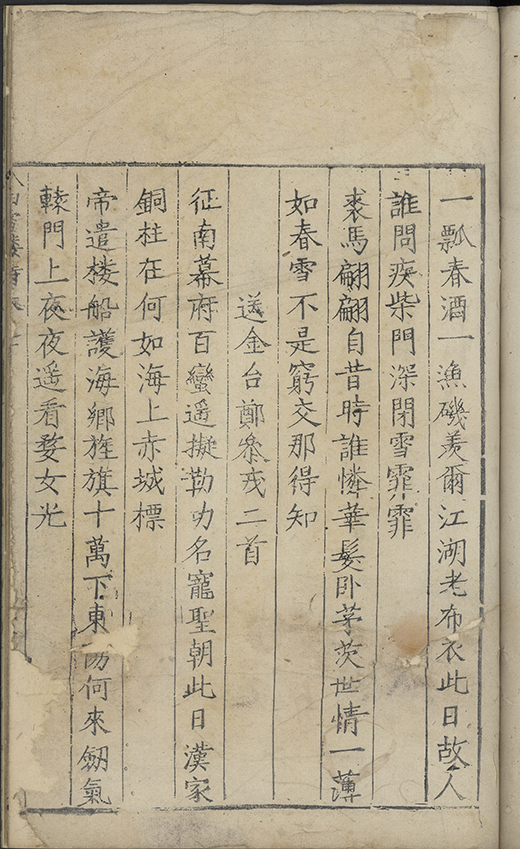 一瓢春酒一漁磯羨爾江湖老布衣此日故人
誰問疾柴門深閉雪霏霏
裘馬翩翩自昔時誰憐華髮卧茅茨世情一薄
如春雪不是窮交那得知
送金台鄭叅戎二首
征南幕府百蠻遥擬勒功名寵聖朝此日漢家
銅柱在何如海上赤城標
帝遣楼船護海鄉旌旗十萬下東 何來劔氣
轅門上夜夜遥看婺女光